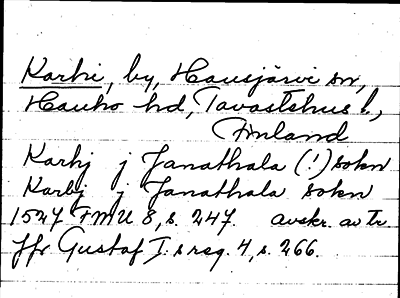 Karhi, by, Hausjärvi sn,
Hauho hd, Tavastehus l.,
Finland
Karhj j Janathala (!) sokn
Karhj j Janathala sokn
1527 FMU 8, s. 247. avskr. av tr.
Jfr Gustaf I:s reg. 4, s. 266.